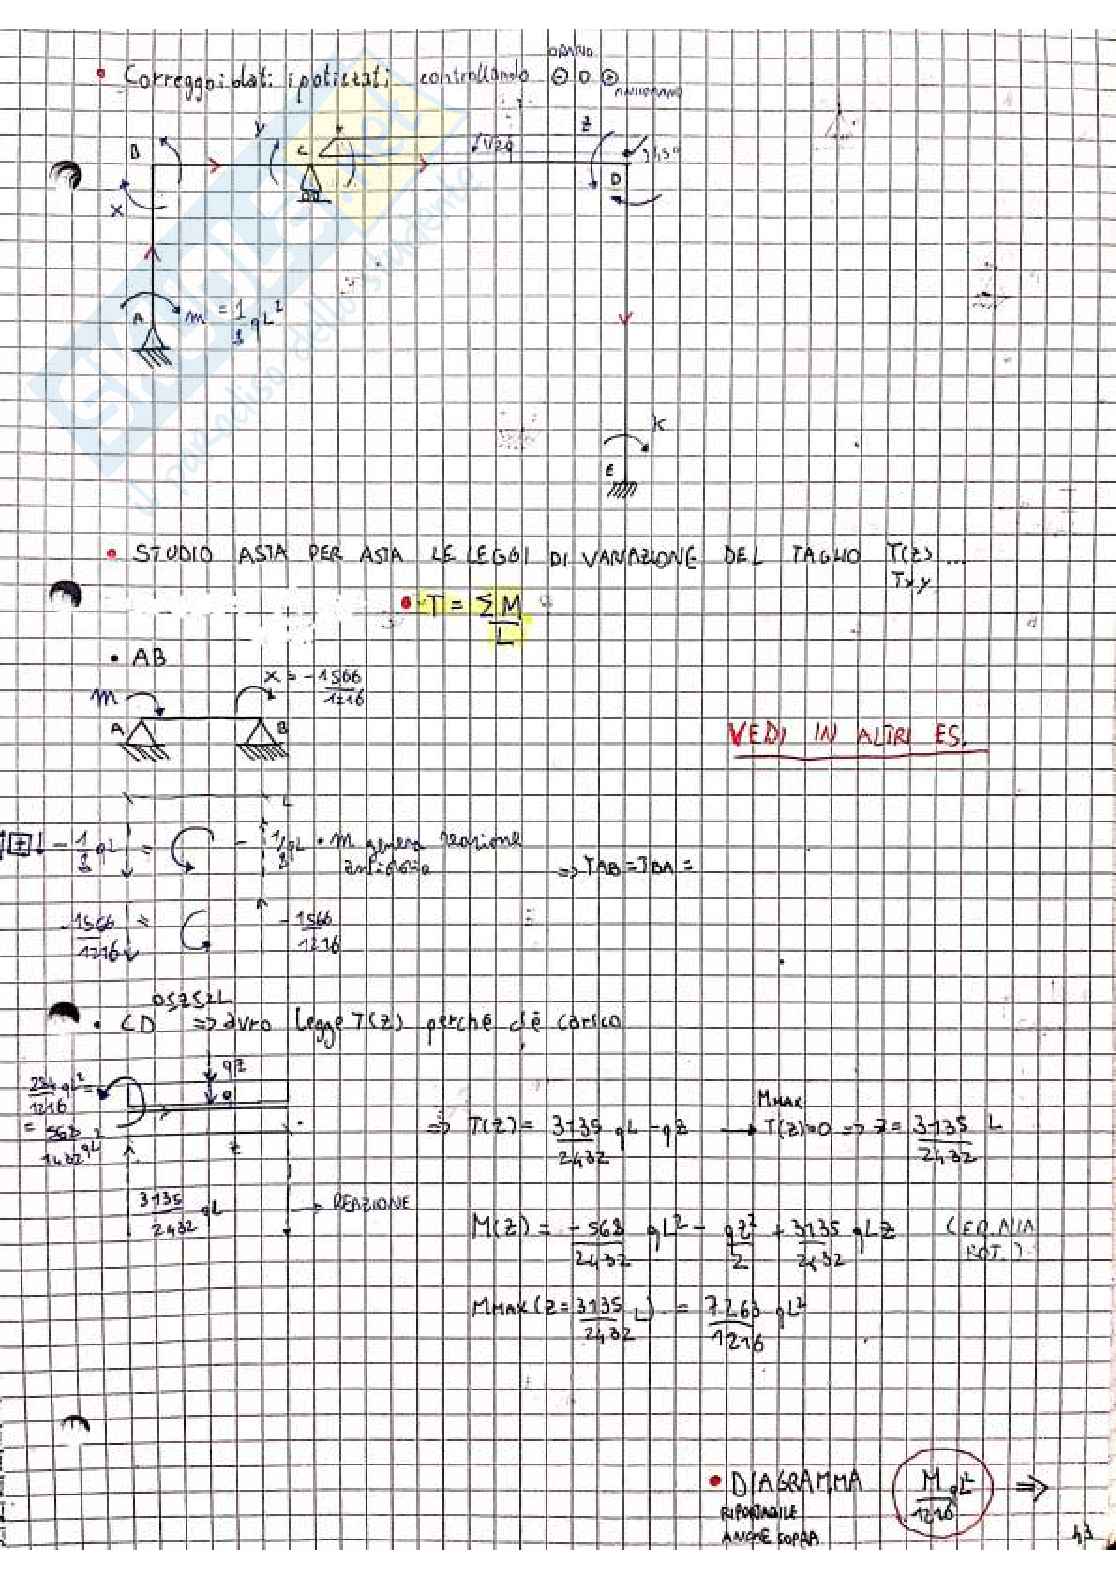 • Correggo i dati ipotizzati controllando
ORARIO
ANTIORARIO
B
y
C
√2q
z
D
x
A
m = 1/8 qL²
K
E
SKUOLA.net
il paradiso dello studente
• STUDIO ASTA PER ASTA LE LEGGI DI VARIAZIONE DEL TAGLIO T(z) ...
Tx,y
• T = ΣM/L
• AB
x = -1566/1216
m
A
B
VEDI IN ALTRI ES.
L
- 1/8 qL = - 1/8 qL • m genera reazione
antioraria
=> TAB = TBA =
-1566/1216 = -1566/1216
0≤z≤2L
• CD => avrò legge T(z) perché c'è carico
qz
q
284/1216 qL² =
= 568/2432 qL²
z
3135/2432 qL
→ REAZIONE
=> T(z) = 3135/2432 qL - qz
MMAX
→ T(z)=0 => z = 3135/2432 L
M(z) = -568/2432 qL² - qz²/2 + 3135/2432 qLz
(EQ. ALLA
ROT.)
MMAX (z = 3135/2432 L) = 7263/1216 qL²
• DIAGRAMMA M/1216 qL² =>
RIPORTABILE
ANCHE SOPRA
43